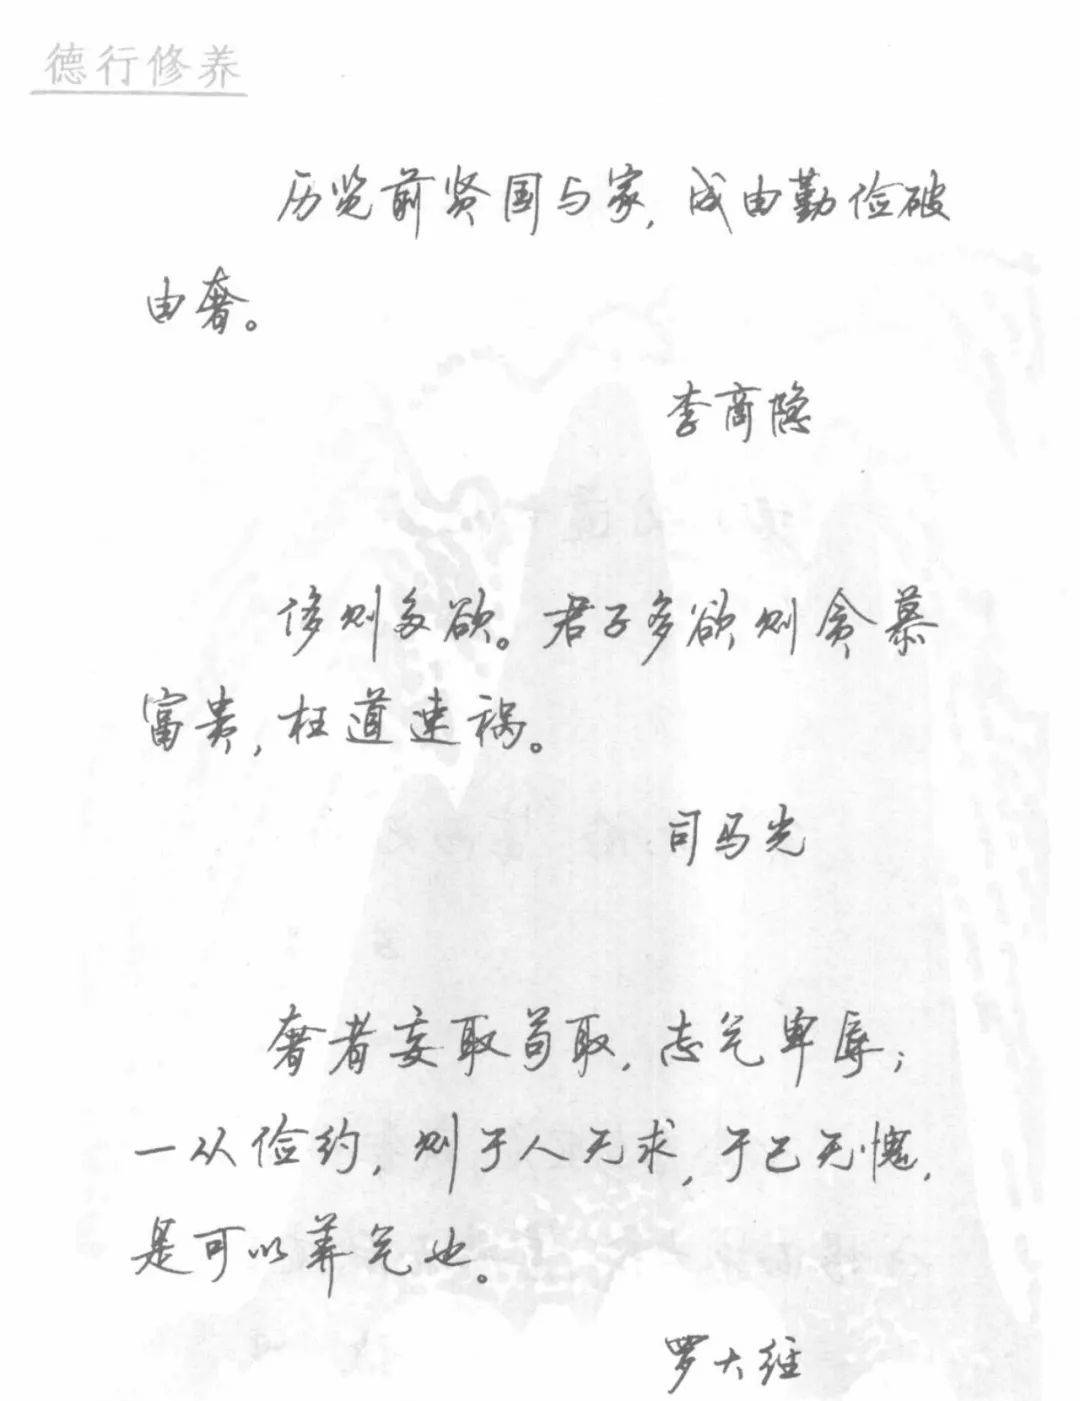 德行修养
历览前贤国与家，成由勤俭破
由奢。
李商隐
侈则多欲。君子多欲则贪慕
富贵，枉道速祸。
司马光
奢者妄取苟取，志气卑辱；
一从俭约，则于人无求，于己无愧，
是可以养气也。
罗大经